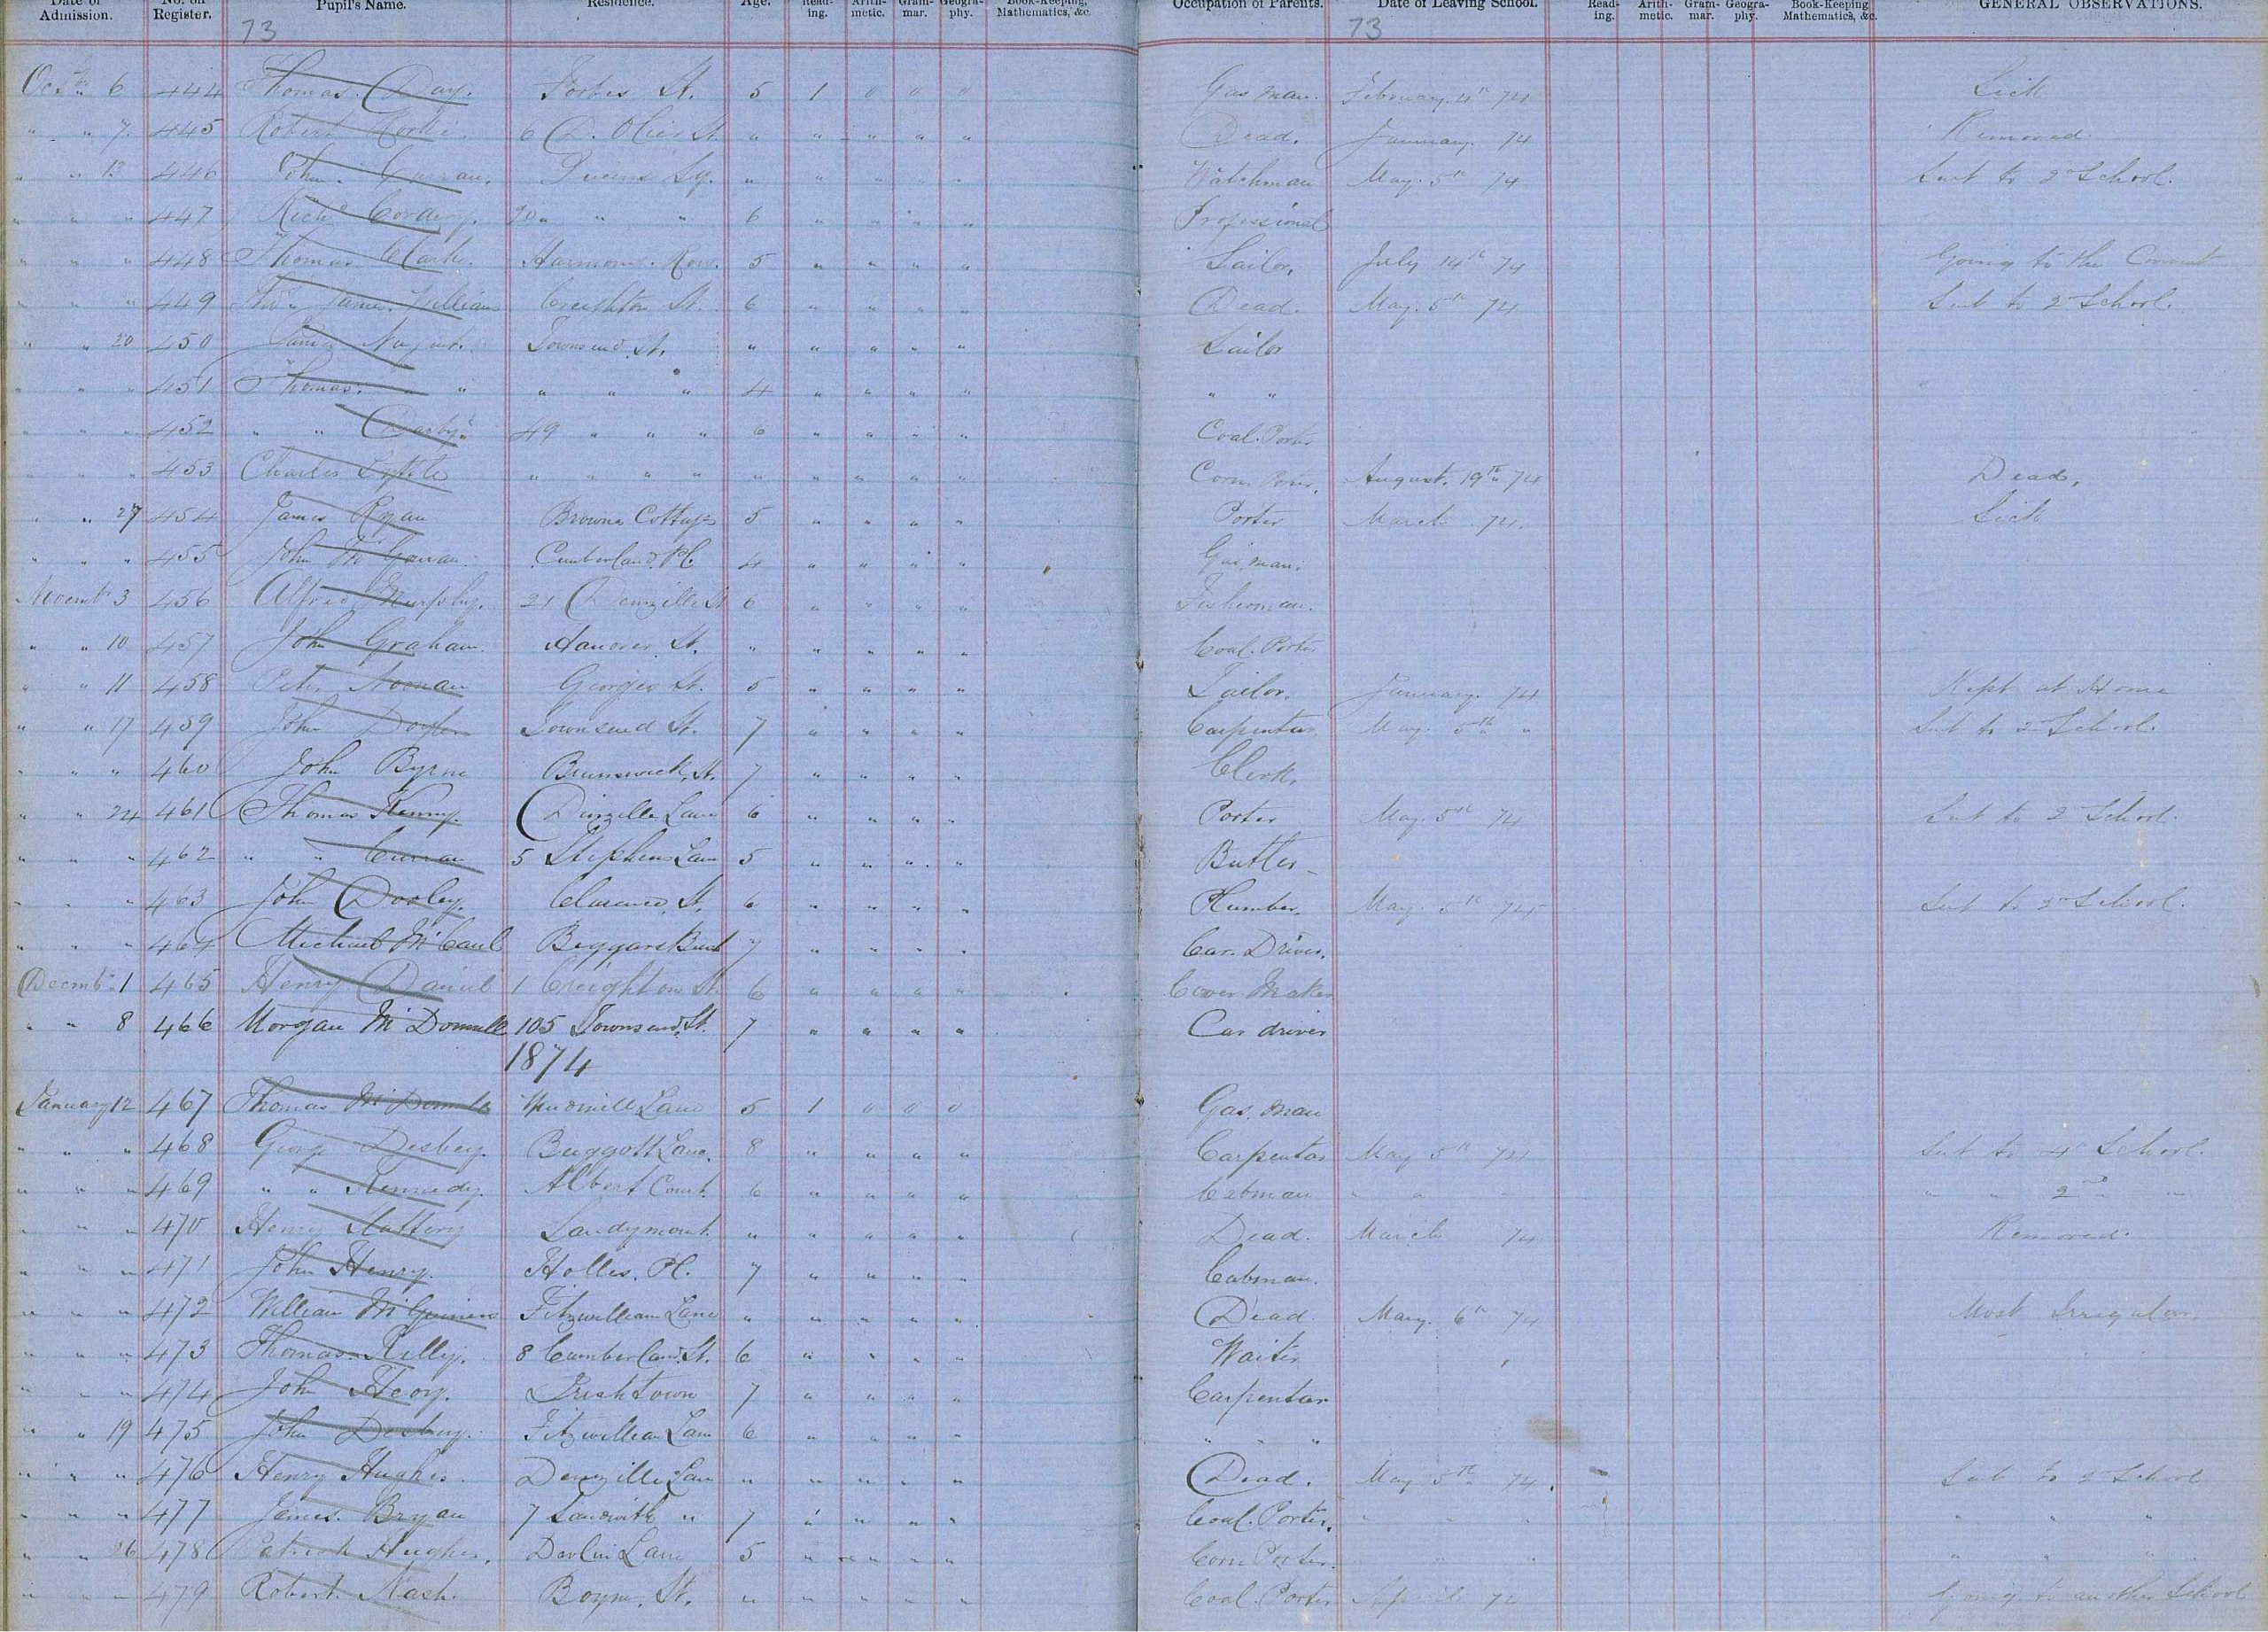 Date of Admission. No. on Register. Pupil's Name. Residence. Age. Read-ing. Arith-metic. Gram-mar. Geogra-phy. Book-Keeping, Mathematics, &c. Occupation of Parents. Date of Leaving School. Read-ing. Arith-metic. Gram-mar. Geogra-phy. Book-Keeping Mathematics, &c. GENERAL OBSERVATIONS.
73 73
6 444 Thomas Day. Forbes St. 5 1 0 0 0 Gas man. February 4th 74 Sick
" " 7. 445 Robert 6 D. Olier St. " " " " " Dead. January. 74 Removed.
" " 13 446 John Curran. Queens Sq. " " " " " Watchman May. 5th 74 Sent to 2d School.
" " " 447 Richd Cordery. 20 " " " 6 " " " " Professional
" " " 448 Thomas Clarke. Harmony. Row. 5 " " " " Sailor, July 14th 74 Going to the Convent
" " " 449 James Creighton St. 6 " " " " Dead. May. 5th 74 Sent to 2d School.
" " 20 450 James Nugent. Townsend St. " " " " " Sailor
" " " 451 Thomas. " " " " 4 " " " " " "
" " " 452 " " Darby. 49 " " " 6 " " " " Coal. Porter
" " " 453 Charles Lyttle " " " " " " " " " Corn Porter, August. 19th 74 Dead.
" " 27 454 James Ryan Browns Cottages 5 " " " " Porter March 74. Sick
" " " 455 John Cumberland Pl. 4 " " " " Gas man.
Novemb 3 456 Alfred Murphy. 21 Denzille St 6 " " " " Fisherman.
" " 10 457 John Graham. Hanover St. " " " " " Coal. Porter
" " 11 458 Peter Noonan Georges St. 5 " " " " Tailor. January. 74 Kept at Home
" " 17 459 John Doyle Townsend St. 7 " " " " Carpenter May. 5th " Sent to 2d School.
" " " 460 John Byrne Brunswick St. 7 " " " " Clerk.
" " 24 461 Thomas Kenny. Denzille Lane 6 " " " " Porter May. 5th 74 Sent to 2d School.
" " " 462 " " Curran 5 Stephens Lane 5 " " " " Butler
" " " 463 John Dooley. Clarence St. 6 " " " " Plumber. May 5th 74 Sent to 2d School.
" " " 464 Michael McCaul Beggars Bush 7 " " " " Car. Driver.
Decemb. 1 465 Henry Daniel 1 Creighton St. 6 " " " " Cover Maker
" " 8 466 Morgan McDonnell 105 Townsend St. 7 " " " " Car driver
1874
January 12 467 Thomas McDonnell Windmill Lane 5 1 0 0 0 Gas. man
" " " 468 George Desbery. Baggott Lane. 8 " " " " Carpenter May 5th 74 Sent to 4th School.
" " " 469 " " Kennedy. Albert Court 6 " " " " Cabman " " " " " 2nd "
" " " 470 Henry Slattery Sandymount. " " " " " Dead. March 74 Removed.
" " " 471 John Henry. Holles. Pl. 7 " " " " Cabman.
" " " 472 William McGuiness Fitzwilliam Lane " " " " " Dead May. 6th 74 Most Irregular.
" " " 473 Thomas Kelly. 8 Cumberland St. 6 " " " " Waiter
" " " 474 John Irishtown 7 " " " " Carpenter
" " 19 475 John Desbery. Fitzwilliam Lane 6 " " " " " " "
" " " 476 Henry Hughes. Denzille Lane " " " " " Dead. May 5th 74. Sent to 2d School
" " " 477 James. Bryan 7 Sandwith " 7 " " " " Coal. Porter. " " " " " "
" " 26 478 Patrick Hughes. Lane 5 " " " " Corn Porter. " " " " " "
" " " 479 Robert. Nash. Boyne. St. " " " " " Coal. Porter April 74 Going to another School